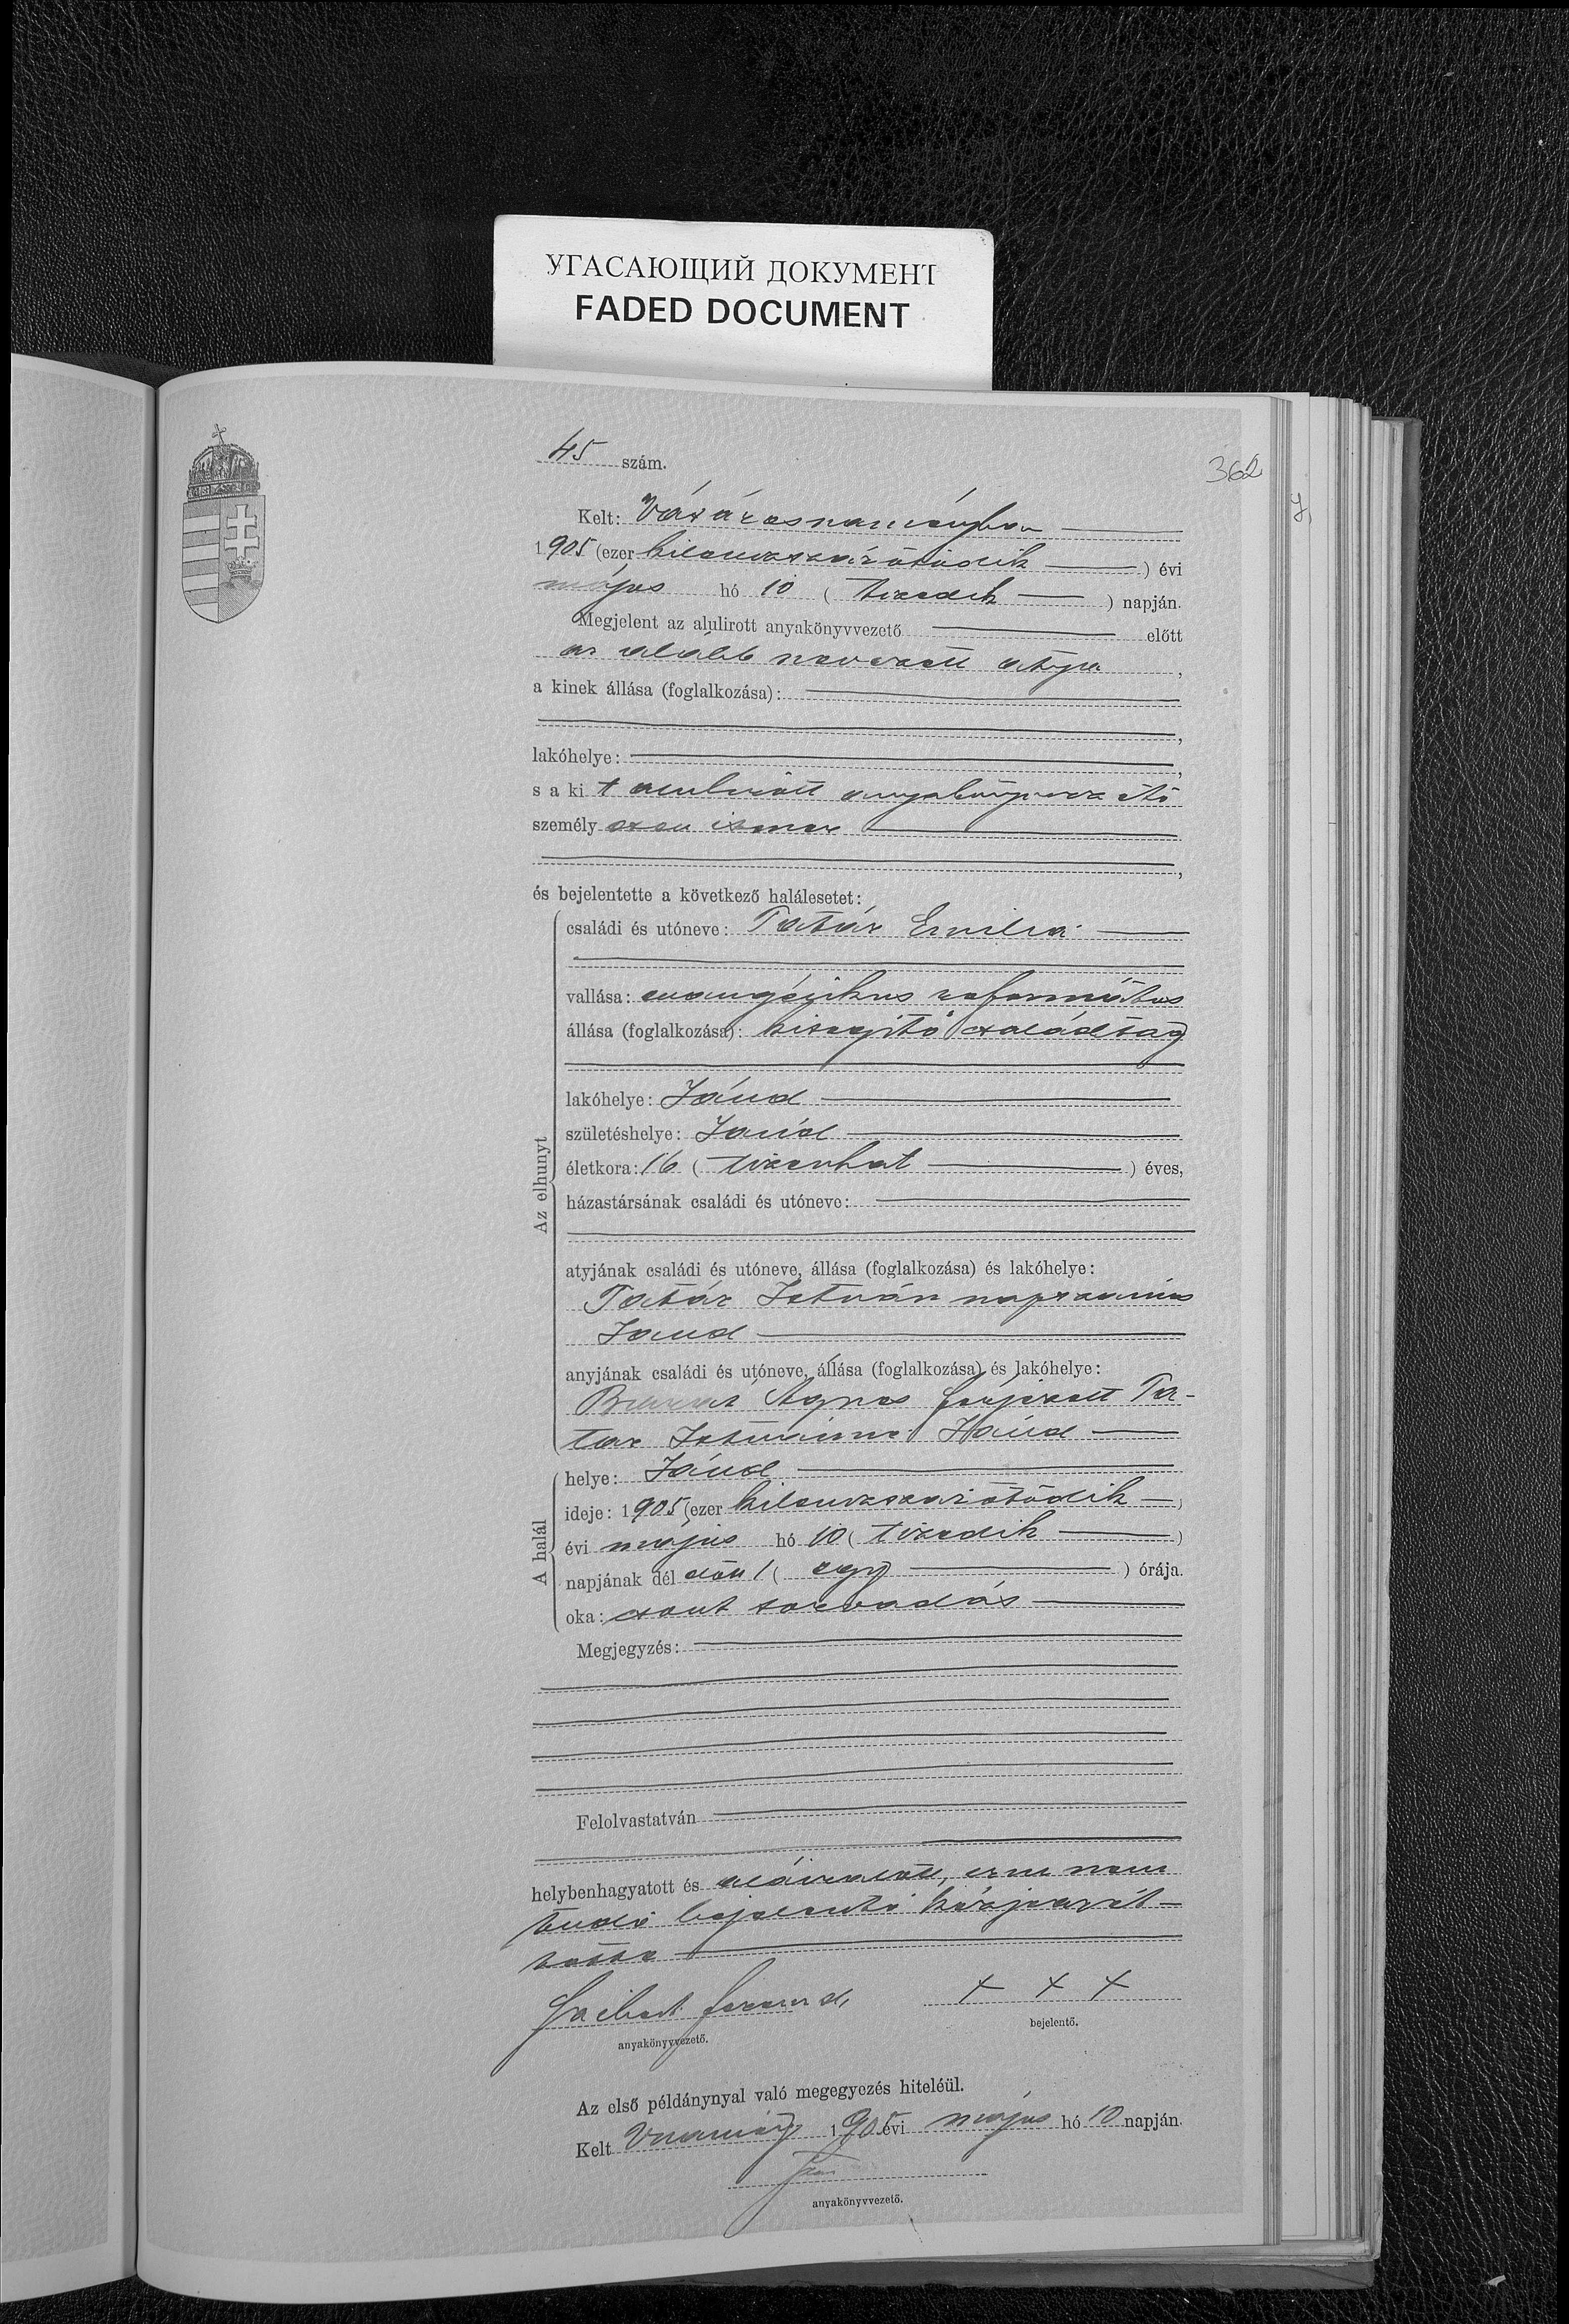 УГАСАЮЩИЙ ДОКУМЕНТ
FADED DOCUMENT
45 szám.
362
Kelt: Vásárosnaményban
1905 (ezer kilencszázötödik ) évi
május hó 10 ( tizedik ) napján.
Megjelent az alulirott anyakönyvvezető előtt
az alább nevezett atya ,
a kinek állása (foglalkozása):
,
lakóhelye: ,
s a ki t alulirott anyakönyvvezető
személyesen ismer
,
és bejelentette a következő halálesetet:
Az elhunyt
családi és utóneve: Tatár Emilia
vallása: evangélikus református
állása (foglalkozása): kisegítő családtag
lakóhelye: Jánd
születéshelye: Jánd
életkora: 16 ( tizenhat ) éves,
házastársának családi és utóneve:
atyjának családi és utóneve, állása (foglalkozása) és lakóhelye:
Tatár István napszámos
Jánd
anyjának családi és utóneve, állása (foglalkozása) és lakóhelye:
Ágnes férjezett Ta-
tár Istvánné Jánd
A halál
helye: Jánd
ideje: 1905 (ezer kilencszázötödik )
évi május hó 10 ( tizedik )
napjának dél előtt 1 ( egy ) órája.
oka: csont sorvadás
Megjegyzés:
Felolvastatván
helybenhagyatott és aláiratott, irni nem
tudó bejelentő kézjegyét
anyakönyvvezető.
+ + +
bejelentő.
Az első példánynyal való megegyezés hiteléül.
Kelt Vnamény 1905 évi május hó 10 napján.
anyakönyvvezető.